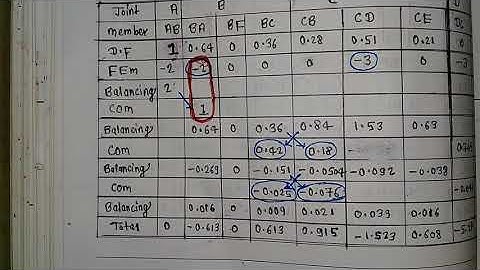 Joint A B D
member AB BA BF BC CB CD CE DC
D.F 1 0.64 0 0.36 0.28 0.51 0.21 0
FEM -2 -2 0 0 0 -3 0 -3
Balancing 2
COM 1
Balancing 0.64 0 0.36 0.84 1.53 0.63
Com 0.42 0.18
Balancing -0.269 0 -0.151 -0.0504 -0.092 -0.038
Com -0.025 -0.076
Balancing 0.016 0 0.009 0.021 0.039 0.016
Total 0 -0.613 0 0.613 0.915 -1.523 0.608